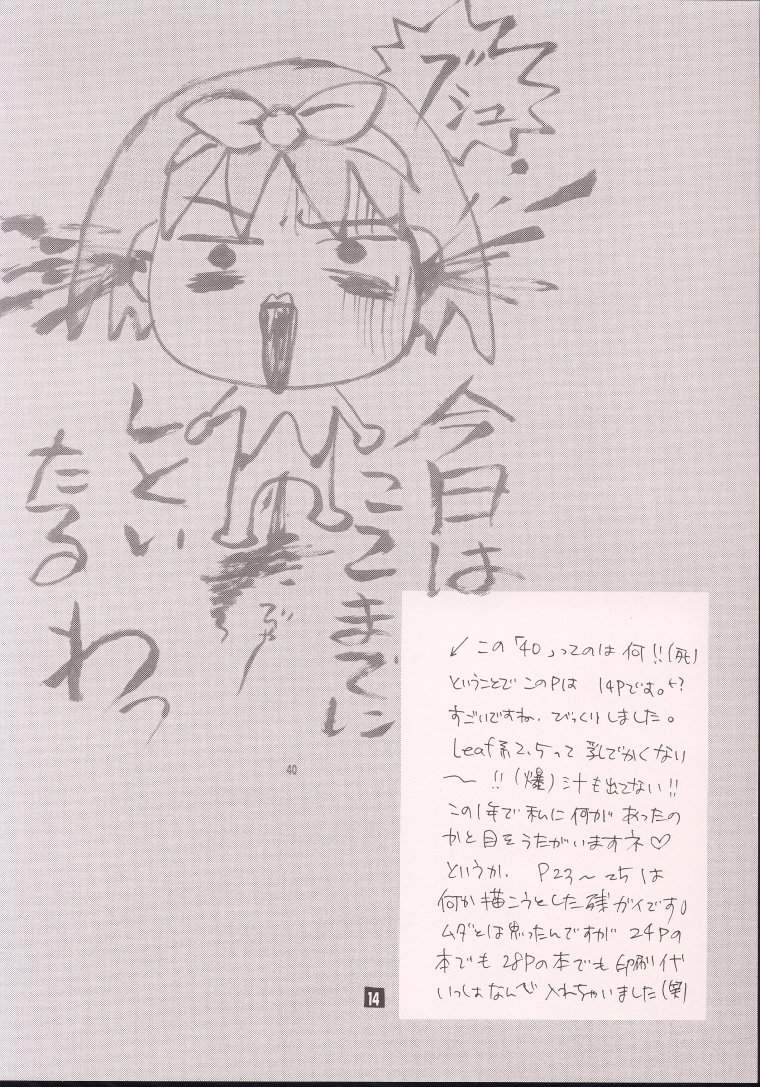 ブシュ
今日は
ここまでに
しとい
たるわっ
でゃ
40
↙この「40」ってのは何!!(死)
ということでこのPは 14Pです。
すごいですね、びっくりしました。
Leaf系2.5って乳でかくない
〜!!(爆)汁も出てない!!
この1年で私に何があったの
かと目をうたがいますネ♡
というか、P23〜25は
何か描こうとした残ガイです。
ムダとは思ったんですが24Pの
本でも28Pの本でも印刷代
いっしょなんで入れちゃいました(笑)
14